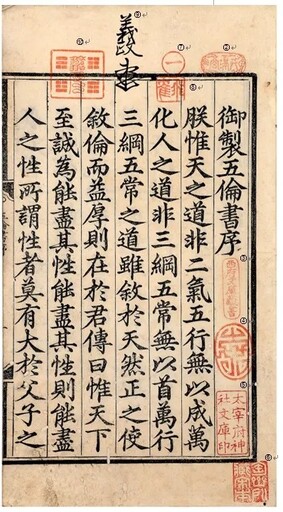 御製五倫書序
朕惟天之道非二氣五行無以成萬
化人之道非三綱五常無以首萬行
三綱五常之道雖敘於天然正之使
敘倫而益厚則在於君傳曰惟天下
至誠為能盡其性能盡其性則能盡
人之性所謂性者莫有大於父子之
太宰府神
社文庫印